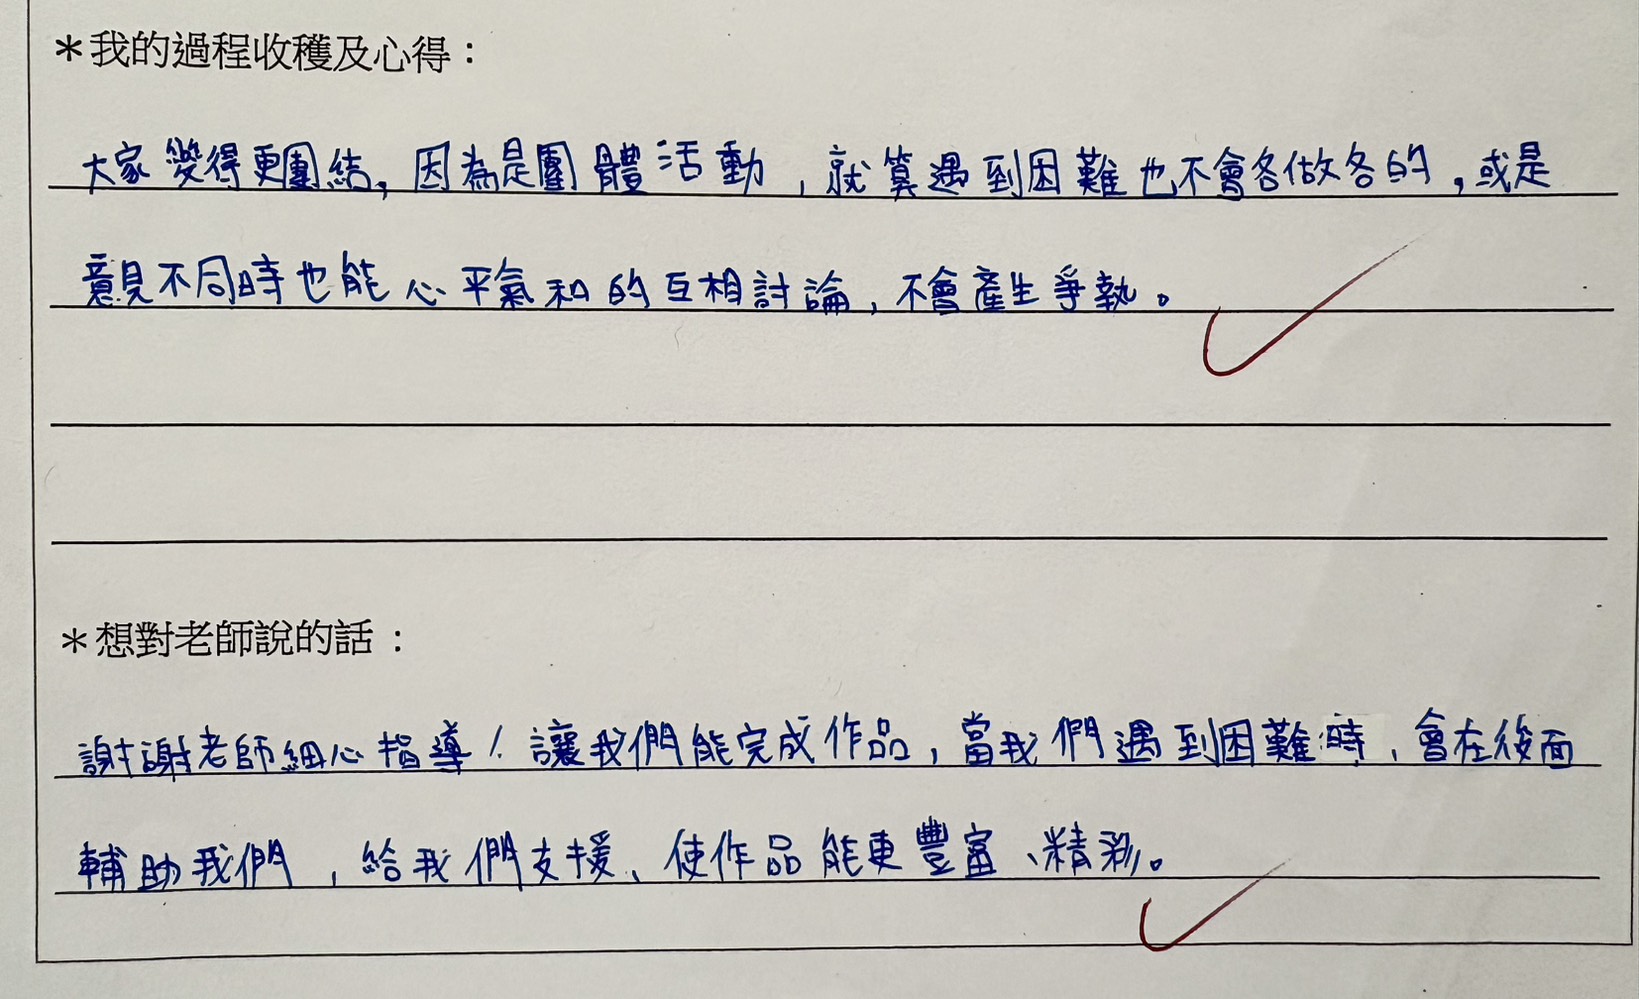 ＊我的過程收穫及心得：
大家變得更團結，因為是團體活動，就算遇到困難也不會各做各的，或是
意見不同時也能心平氣和的互相討論，不會產生爭執。
＊想對老師說的話：
謝謝老師細心指導！讓我們能完成作品，當我們遇到困難時，會在後面
輔助我們，給我們支援、使作品能更豐富、精彩。